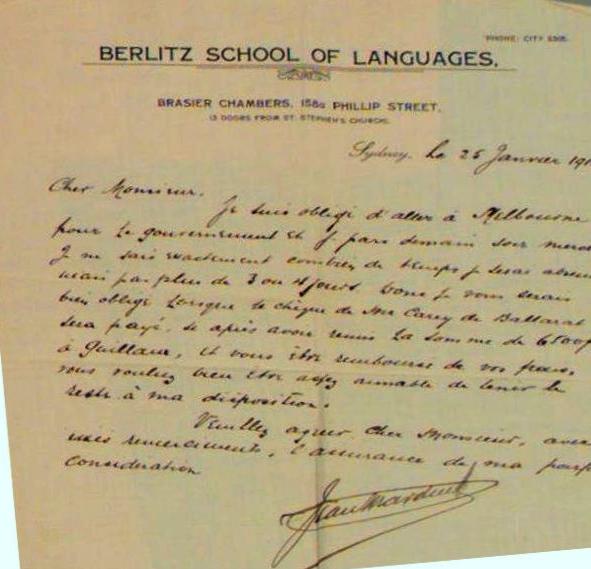 'PHONE: CITY
BERLITZ SCHOOL OF LANGUAGES,
BRASIER CHAMBERS, 158a PHILLIP STREET,
(3 DOORS FROM ST. STEPHEN'S CHURCH).
Sydney, le 25 Janvier 191
Cher Monsieur.
Je suis obligé d'aller à Melbourne
pour le gouvernement et j pars demain soir
Je ne sais exactement combien de temps je serai absent
mais pas plus de 3 ou 4 jours Donc je vous serais
bien obligé Lorsque le chèque de Mr Carey de Ballarat
sera payé, si après avoir remis la somme de
à Guillaux, et vous être remboursé de vos frais,
vous vouliez bien être assez aimable de tenir le
reste à ma disposition.
Veuillez agréer Cher Monsieur, avec
mes remerciements, l'assurance de ma
considération